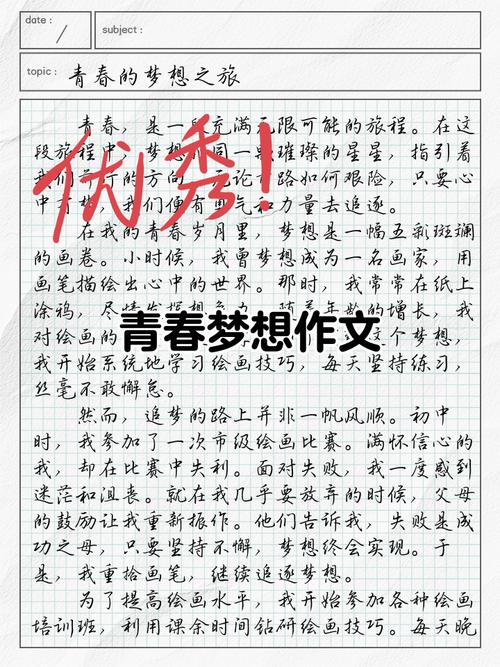 date:
subject:
topic: 青春的梦想之旅
青春，是一段充满无限可能的旅程。在这
段旅程中，梦想如同一颗璀璨的星星，指引着
我们前行的方向。无论道路如何艰险，只要心
中有梦，我们便有勇气和力量去追逐。
优秀！
在我的青春岁月里，梦想是一幅五彩斑斓
的画卷。小时候，我曾梦想成为一名画家，用
画笔描绘出心中的世界。那时，我常常在纸上
涂鸦，尽情发挥想象力。随着年龄的增长，我
对绘画的
青春梦想作文
这个梦想，
我开始系统地学习绘画技巧，每天坚持练习，
丝毫不敢懈怠。
然而，追梦的路上并非一帆风顺。初中
时，我参加了一次市级绘画比赛。满怀信心的
我，却在比赛中失利。面对失败，我一度感到
迷茫和沮丧。就在我几乎要放弃的时候，父母
的鼓励让我重新振作。他们告诉我，失败是成
功之母，只要坚持不懈，梦想终会实现。于
是，我重拾画笔，继续追逐梦想。
为了提高绘画水平，我开始参加各种绘画
培训班，利用课余时间钻研绘画技巧。每天晚